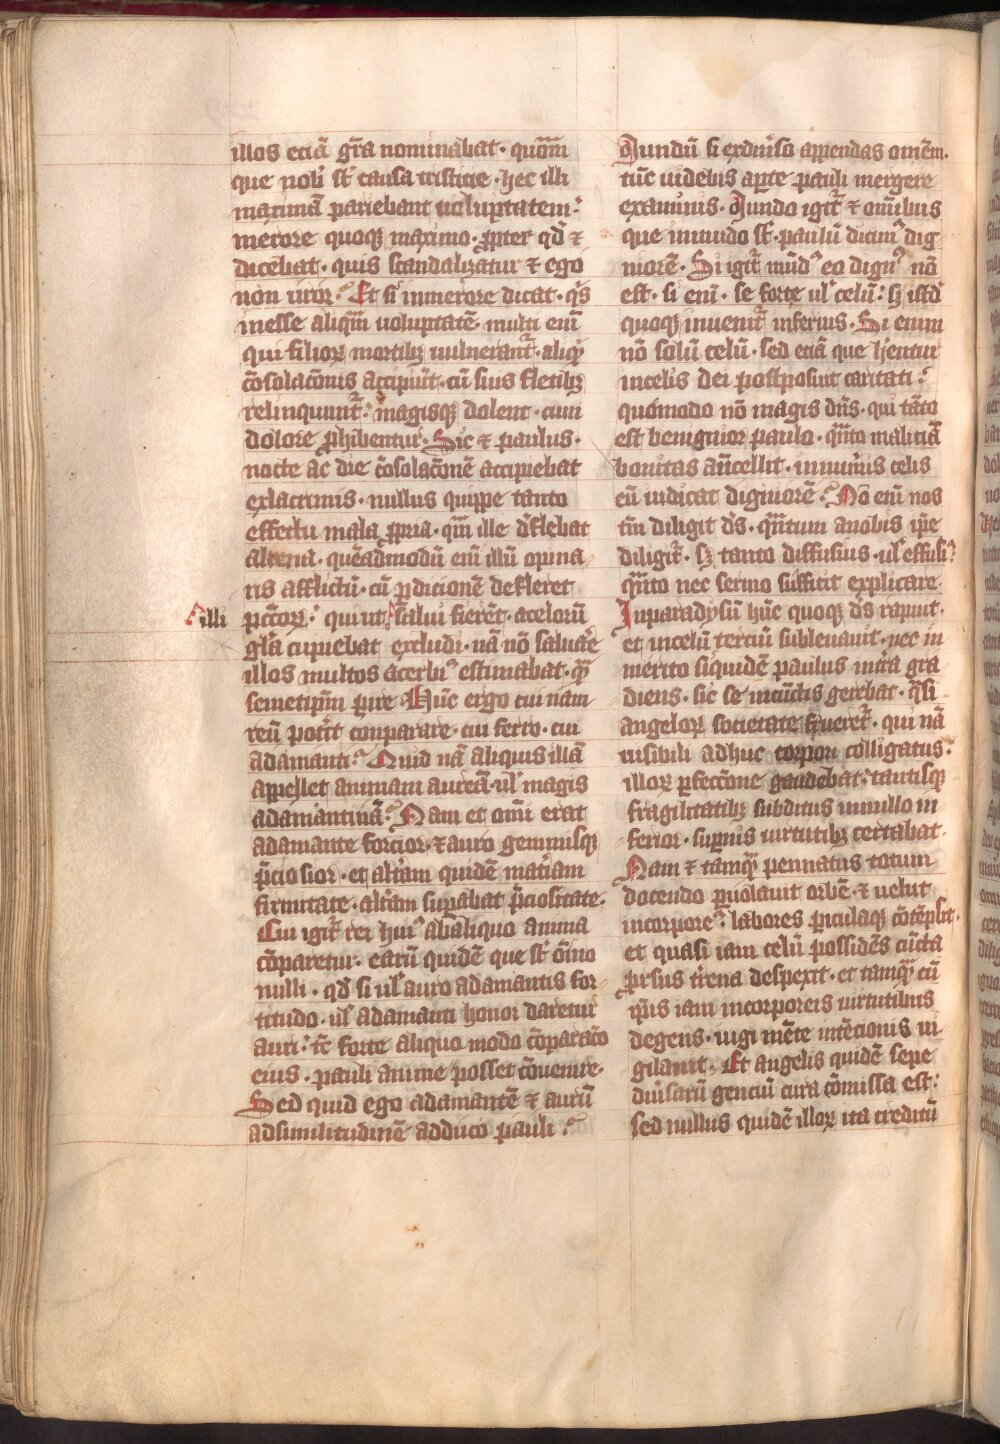 illos eciā gr̄a nominabat · quom̄
que nob̄ st̄ causa tristicie · hec illi
maximā pariebant uoluptatem :
merore quoqꝫ maximo · ꝓpter qd̄ ⁊
dicebat · quis scandalizatur ⁊ ego
non uror ? Et si inmerore dicat · qͥs
inesse aliqm̄ uoluptatē multi eni᷒
qui filioꝝ mortibꝫ uulnerant᷑ · aliqͥ
ꝯ̄solacōnis accipiūt · cū suis fletibꝫ
relinquunt᷑ : magisqꝫ dolent · cum
dolore ꝓhibentur · Sic ⁊ paulus ·
nocte ac die cōsolacōnē accipiebat
exlacrimis · nullus quippe tanto
effectu mala ꝓpria · qm̄ ille d̄flebat
aliena · quēadmodū eni᷒ illū opina
ris afflictū · cū ꝑdicionē defleret
pctōꝝ : qui ut salui fierēt · acelorū
illi
gl̄a cupiebat excludi · nā nō saluare
illos multos acerbi᷒ estimabat · qͣ᷒
semetip̄m ꝑire · Hūc ergo cui nam
reū potit̄ conparare · cui ferro · cui
adamanti ? Quid nā aliquis illā
appellet animam aureā · ul̄ magis
adamantinā ? Nam et om̄i erat
adamante forcior · ⁊ auro gemmisqꝫ
p̄ciosior · et alt̄am quidē mat̄iam
firmitate · alt̄am supabat p̄ciositate ·
Cui igit᷑ rei hui᷒ abaliquo anima
cōparetur · earū quidē que st̄ ōino
nulli · qd̄ si ul̄ auro adamantis for
titudo · ul̄ adamanti honor daretur
auri : tc̄ forte aliquo modo cōparacō
eius · pauli anime posset ꝯ̄uenire ·
Sed quid ego adamantē ⁊ aurū
adsimilitudinē adduco pauli ?
Mundū si exdiuīso appendas omēm ·
tūc uidebis aꝑte pauli mergere
examinis · Mundo igit᷑ ⁊ om̄ibus
que inmudo st̄ · paulū dicim᷒ dig
niorē · Si igit᷑ mūd᷒ eo dign᷒ nō
est · si eni᷒ · se forte ul̄ celū : sꝫ istd̄
quoqꝫ inuenit᷑ inferius · Si enim
nō solū celū · sed eciā que h̄entur
incelis dei postposuit caritati :
quomodo nō magis dn̄s · qui tāto
est benignior paulo · qn̄to maliciā
bonitas an̄cellit · innumīs celis
eū iudicat digniorē ? Nō eni᷒ nos
tm̄ diligit ds̄ · qn̄tum anobis ip̄e
diligit᷑ · sꝫ tanto diffusius · ul̄ effusi᷒
qn̄to nec sermo sufficit explicare ·
Inparadysū hūc quoqꝫ ds̄ rapuit ·
et incelū terciū subleuauit · nec in
merito siquidē paulus intra gra
diens · sic se incūctis gerebat · qͣsi
angeloꝝ societate frueret᷑ · qui nā
uisibili adhuc corpori colligatus :
illoꝝ ꝑfeccōne gaudebat : tantisqꝫ
fragilitatibꝫ subditus innullo in
ferior · suꝑnis uirtutibꝫ certabat ·
Nam ⁊ tamqͣ᷒ pennatus totum
docendo ꝑuolauit orbē · ⁊ uelut
incorpore᷒ · labores ꝑiculaqꝫ cōtēpsit ·
et quasi iam celū possidēs cūcta
ꝓrsus tr̄rena despexit · et tamqͣ᷒ cū
ip̄is iam incorporeis uirtutibus
degens · iugi mēte intēcionis ui
gilauit · Et angelis quidē sepe
diūsarū genciū cura cōmissa est :
sed nullus quidē illoꝝ ita creditū